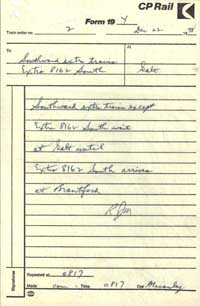 CP Rail
Form 19 Y
Train order no. 2 Dec 22 78
To At
Southward extra trains
Extra 8162 South Galt
Southward extra trains except
Extra 8162 South wait
at Galt until
Extra 8162 South arrives
at Brantford
RJM
Signatures
Repeated at 0817
Made com Time 0817 Opr Macauley